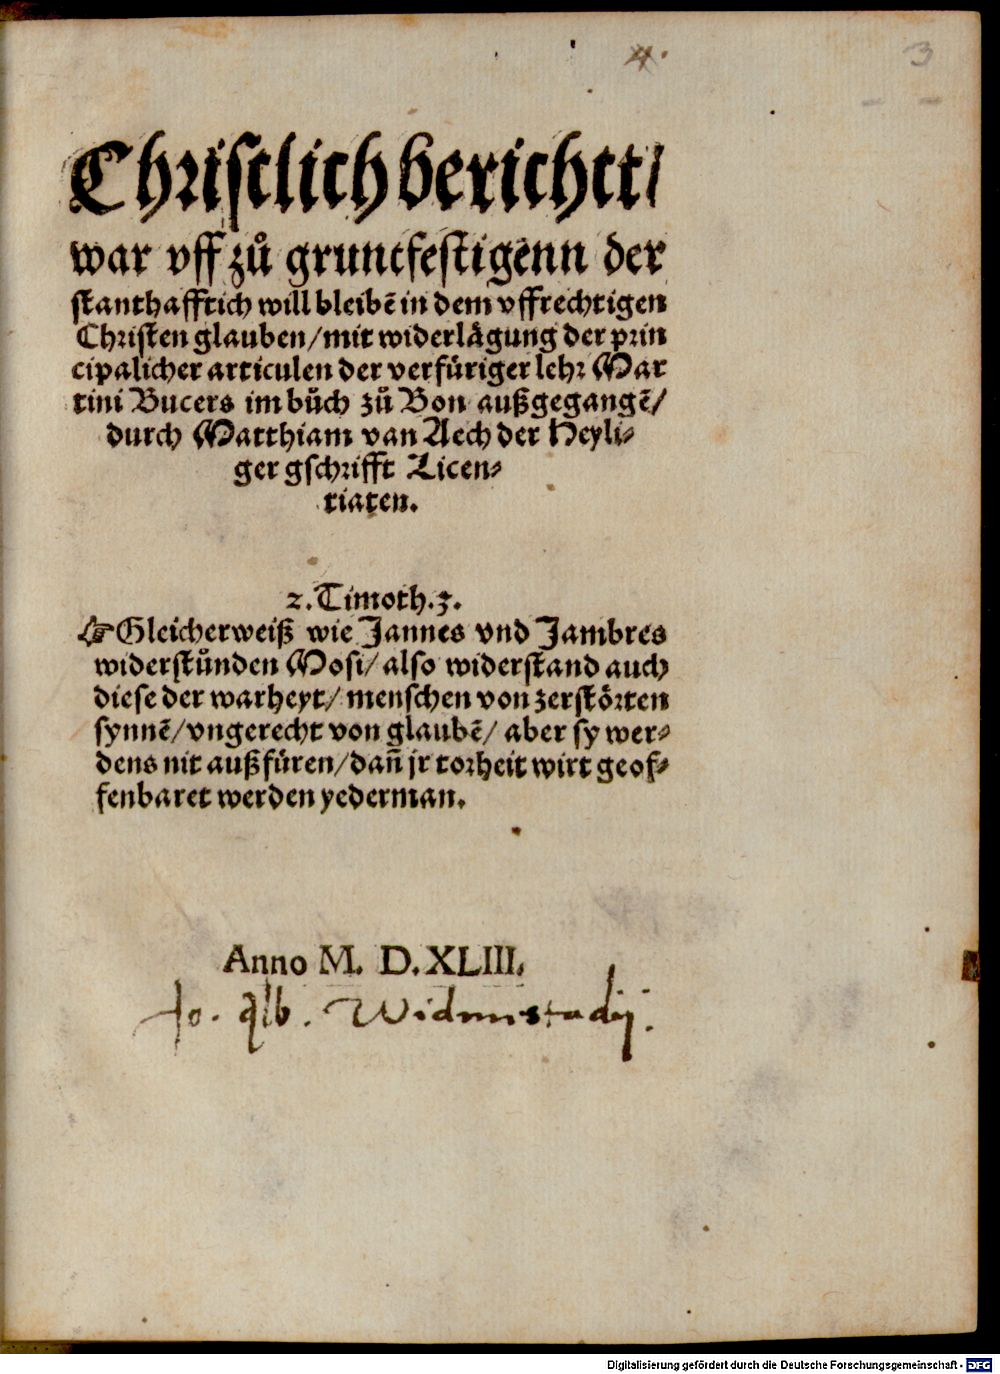 4.
3
Christlich berichtt/
war vff zů gruntfestigēnn der
stanthafftich will bleibē in dem vffrechtigen
Christen glauben/mit widerlägung der prin
cipalicher articulen der verfüriger lehr Mar
tini Bucers im bůch zů Bon außgegangē/
durch Matthiam van Aech der Heyli⸗
ger gschrifft Licen⸗
tiaten.
2. Timoth.3.
☞Gleicherweiß wie Jannes vnd Jambres
widerstůnden Mosi/ also widerstand auch
diese der warheyt/ menschen von zerstörten
synnē/vngerecht von glaubē/ aber sy wer⸗
dens nit außfüren/dañ jr torheit wirt geof⸗
fenbaret werden yederman.
Anno M. D. XLIII.
Jo. Alb. Widmstadij.
Digitalisierung gefördert durch die Deutsche Forschungsgemeinschaft - DFG